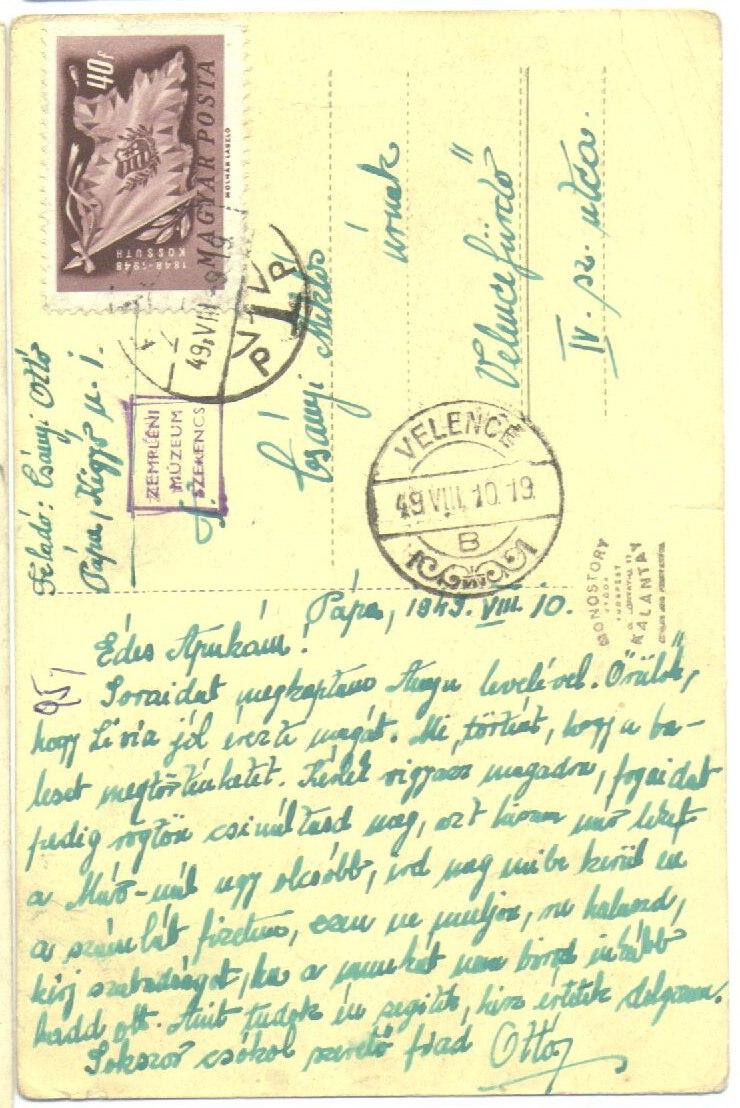 40f
MAGYAR POSTA
1848-1948
KOSSUTH
MOLNÁR LÁSZLÓ
49. VIII
P T P
Feladó: Csányi Ottó
Pápa, Kigyó u. 1.
ZEMPLÉNI
MÚZEUM
SZERENCS
Csányi Miklós
úrnak
Velencefürdő
IV. sz. utca.
VELENCE
49 VIII. 10. 19
B
MONOSTORY
GYÖRGY
BUDAPEST
KALANTAY
951
Pápa, 1949. VIII. 10.
Édes Apukám!
Soraidat megkaptam Anyu levelével. Örülök,
hogy Lívia jól érezte magát. Mi történt, hogy a ba-
leset megtörténhetett. Kérlek vigyázz magadra, fogaidat
pedig rögtön csináltasd meg, azt hiszem már lehet
a Máv-nál úgy olcsóbb, ird meg mibe kerül én
a számlát fizetem, ezen ne muljon, ne halaszd,
kérj szabadságot, ha a munkát nem birod inkább
hadd ott. Amit tudok én segitek, hisz értetek dolgozom.
Sokszor csókol szerető fiad Ottó